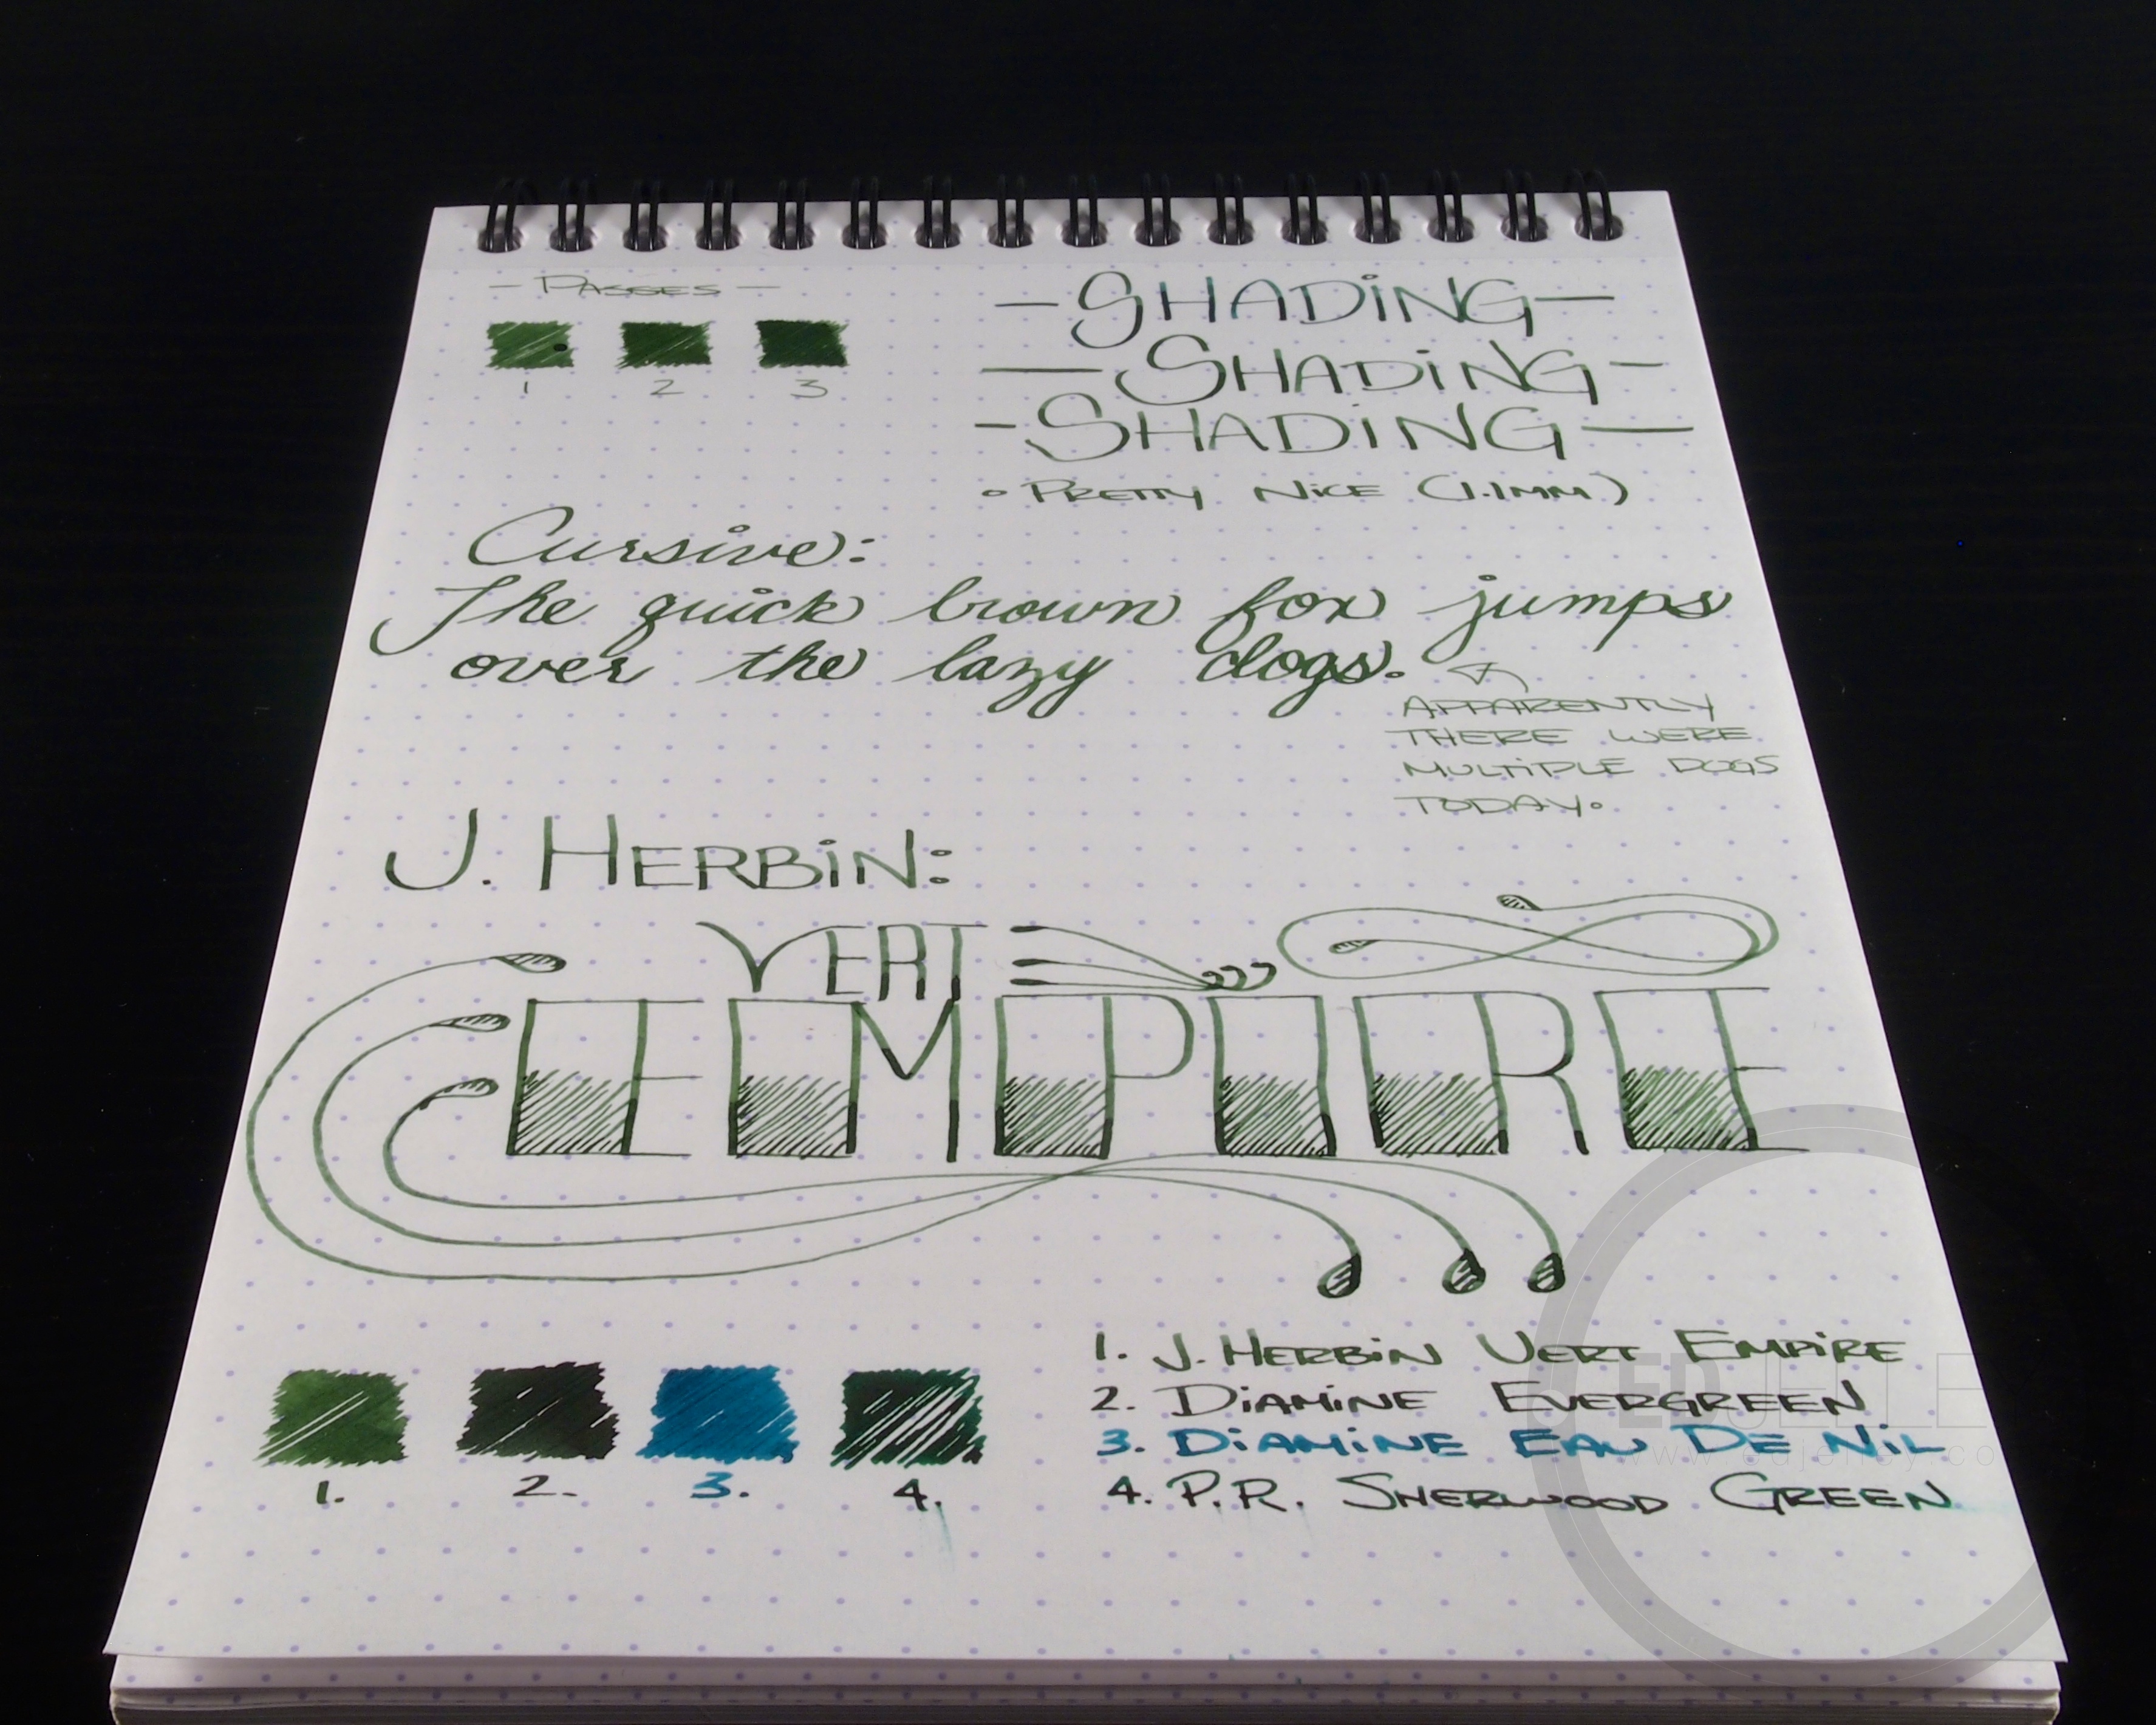 - PASSES -
1 2 3
- SHADiNG -
- SHADiNG -
- SHADiNG -
• PRETTY NiCE (1.1MM)
Cursive:
The quick brown fox jumps
over the lazy dogs.
APPARENTLY
THERE WERE
MULTiPLE DOGS
TODAY.
J. HERBiN:
VERT
EMPIRE
1. 2. 3. 4.
1. J. HERBiN VERT EMPiRE
2. DiAMiNE EVERGREEN
3. DiAMiNE EAU DE NiL
4. P.R. SHERWOOD GREEN